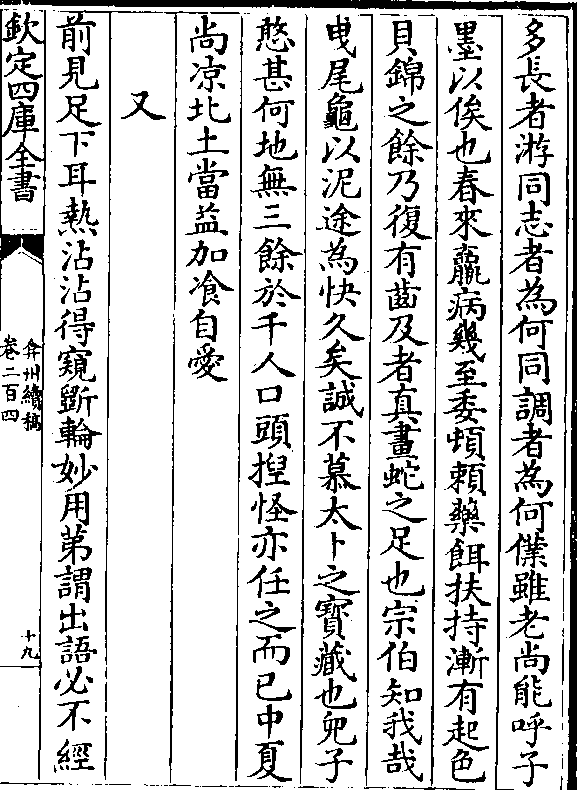 多長者游同志者為何同調者為何僕雖老尚能呼子
墨以俟也春來羸病幾至委頓頼藥餌扶持漸有起色
貝錦之餘乃復有齒及者真畫蛇之足也宗伯知我哉
曳尾龜以泥途為快久矣誠不慕太卜之寶藏也兒子
憨甚何地無三餘於千人口頭揑怪亦任之而已中夏
尚凉北土當益加飡自愛
又
前見足下耳熱沾沾得窺斲輪妙用苐謂出語必不經
欽定四庫全書
弇州續稿
卷二百四
十九